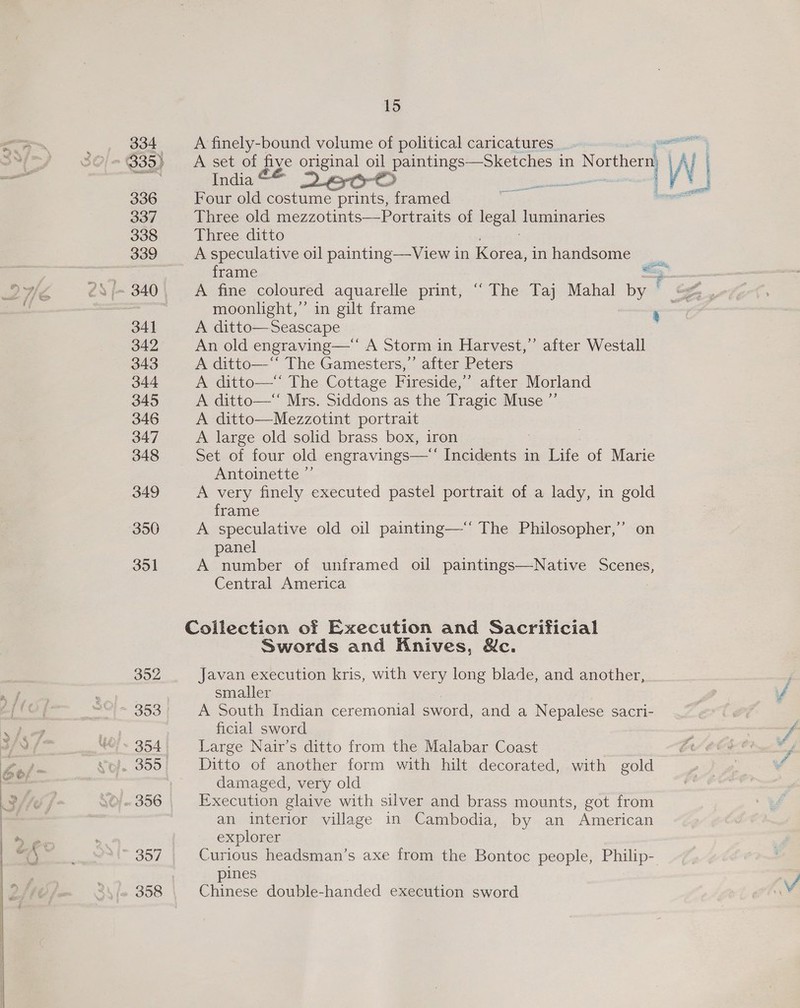 15
334 A finely-bound volume of political caricatures
30/- 335) A set of five original oil paintings—Sketches in Northern
India
W
336 Four old costume prints, framed
337 Three old mezzotints—Portraits of legal luminaries
338 Three ditto
339 A speculative oil painting—View in Korea, in handsome
frame
340 A fine coloured aquarelle print, “ The Taj Mahal by
moonlight,” in gilt frame
341 A ditto—Seascape
342 An old engraving—“ A Storm in Harvest,” after Westall
343 A ditto—“ The Gamesters,” after Peters
344 A ditto—“ The Cottage Fireside,” after Morland
345 A ditto—“ Mrs. Siddons as the Tragic Muse ”
346 A ditto—Mezzotint portrait
347 A large old solid brass box, iron
348 Set of four old engravings—“ Incidents in Life of Marie
Antoinette ”
349 A very finely executed pastel portrait of a lady, in gold
frame
350 A speculative old oil painting—“ The Philosopher,” on
panel
351 A number of unframed oil paintings—Native Scenes,
Central America
Collection of Execution and Sacrificial
Swords and Knives, &c.
352 Javan execution kris, with very long blade, and another,
smaller
353 A South Indian ceremonial sword, and a Nepalese sacri-
ficial sword
354 Large Nair’s ditto from the Malabar Coast
355 Ditto of another form with hilt decorated, with gold
damaged, very old
356 Execution glaive with silver and brass mounts, got from
an interior village in Cambodia, by an American
explorer
357 Curious headsman’s axe from the Bontoc people, Philip-
pines
358 Chinese double-handed execution sword